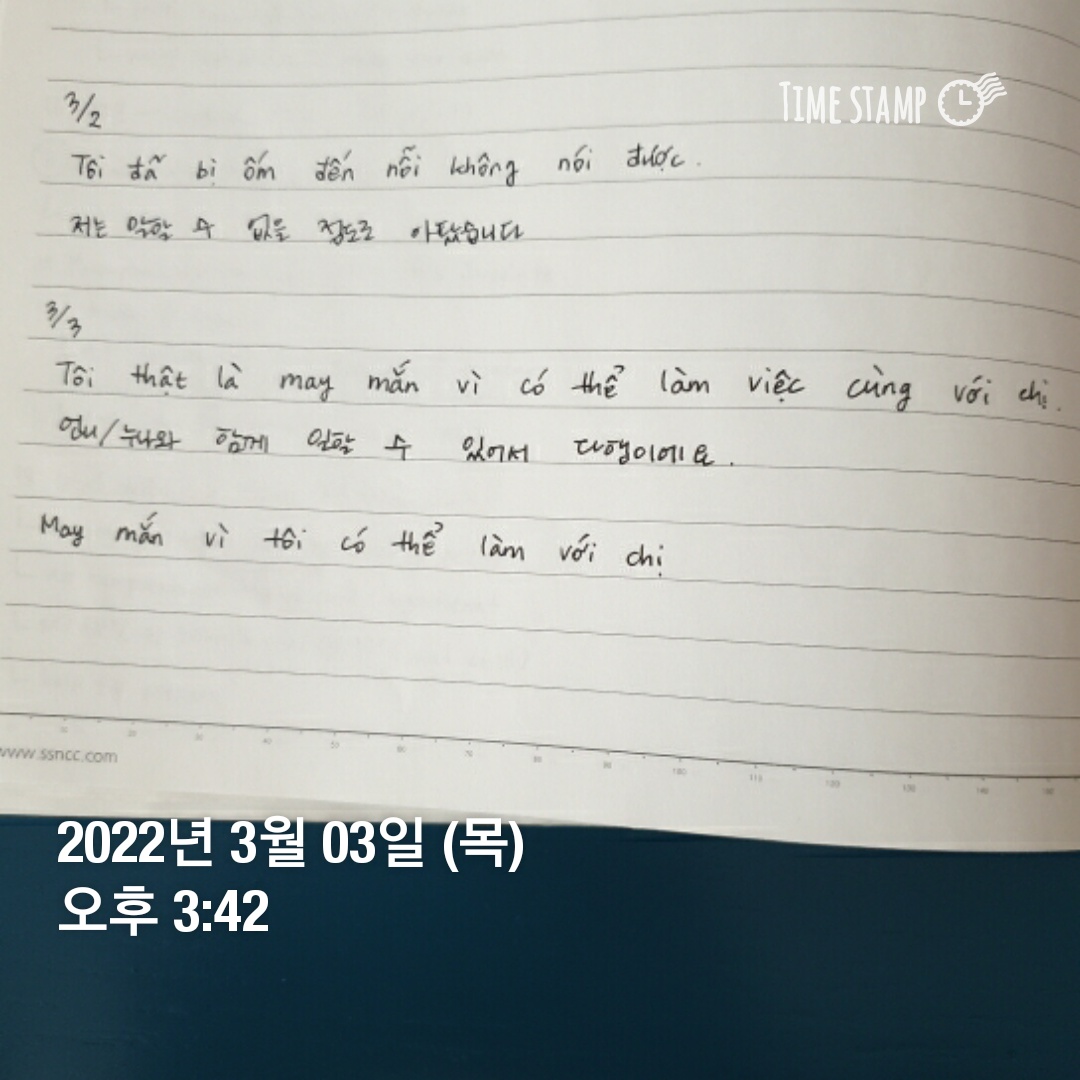 TIME STAMP
3/2
Tôi đã bị ốm đến nỗi không nói được.
저는 말할 수 없을 정도로 아팠습니다
3/3
Tôi thật là may mắn vì có thể làm việc cùng với chị.
언니/누나와 함께 일할 수 있어서 다행이에요.
May mắn vì tôi có thể làm với chị
www.ssncc.com
2022년 3월 03일 (목)
오후 3:42